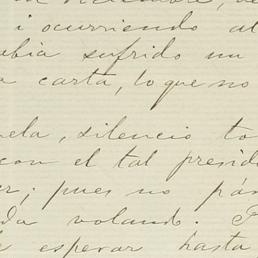 i ocurriendo al
sufrido un
carta, lo que no
silencio to
con el tal presid
er; pues no
da volando.
esperar hasta